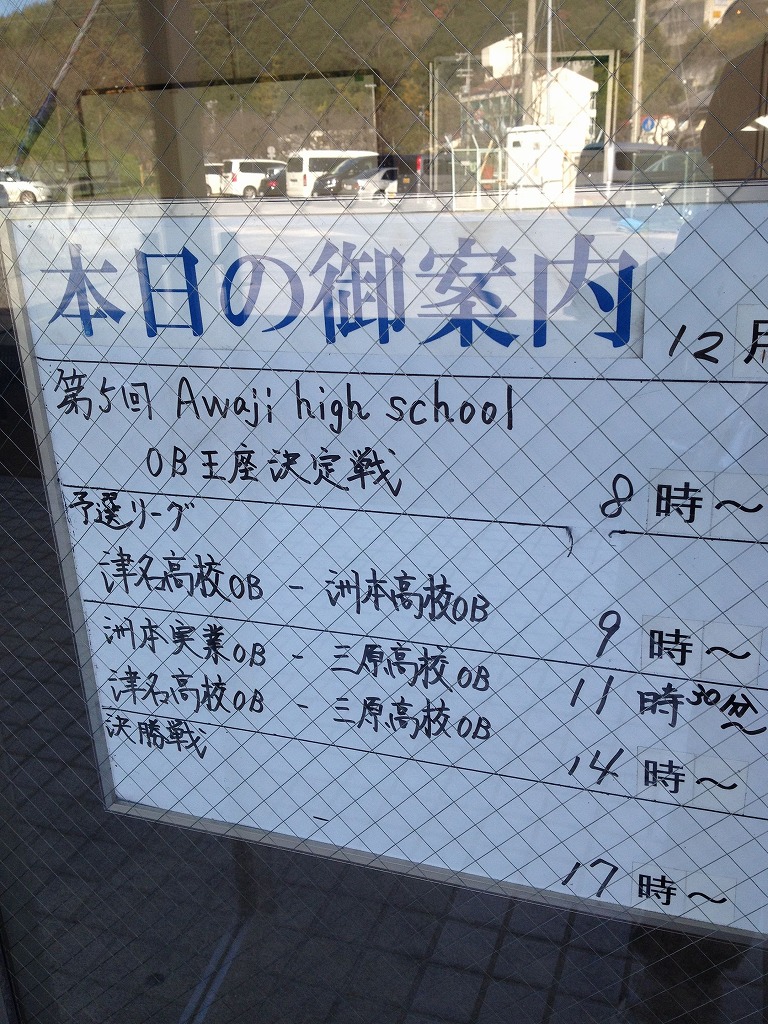 本日の御案内
12月
第5回 Awaji high school
OB王座決定戦
8時〜
予選リーグ
津名高校OB - 洲本高校OB
9時〜
洲本実業OB - 三原高校OB
11時30分〜
津名高校OB - 三原高校OB
14時〜
決勝戦
17時〜